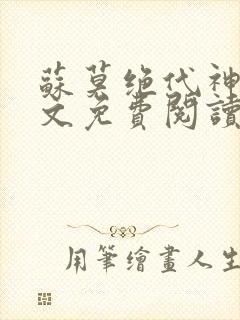 蘇莫绝代神
文免費閱讀
用筆繪畫人生